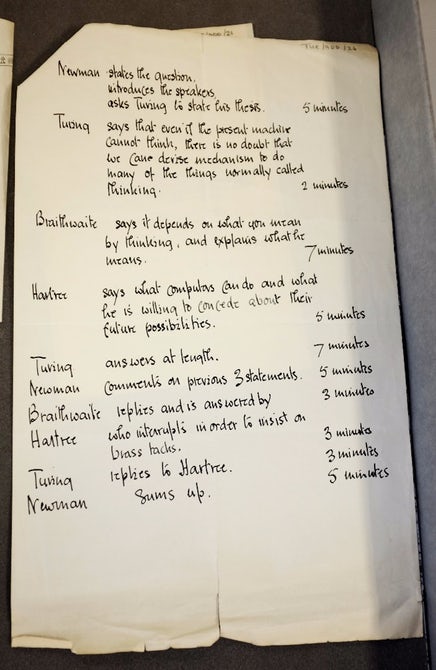 THE/400/26
Newman states the question,
introduces the speakers
asks Turing to state his thesis. 5 minutes
Turing says that even if the present machine
cannot think, there is no doubt that
we cane devise mechanism to do
many of the things normally called
thinking. 2 minutes
Braithwaite says it depends on what you mean
by thinking, and explains what he
means. 7 minutes
Hartree says what computors can do and what
he is willing to concede about their
future possibilities. 5 minutes
Turing answers at length. 7 minutes
Newman comments on previous 3 statements. 5 minutes
Braithwaite replies and is answered by 3 minutes
Hartree who interrupts in order to insist on
brass tacks. 3 minutes
Turing replies to Hartree. 3 minutes
Newman sums up. 5 minutes